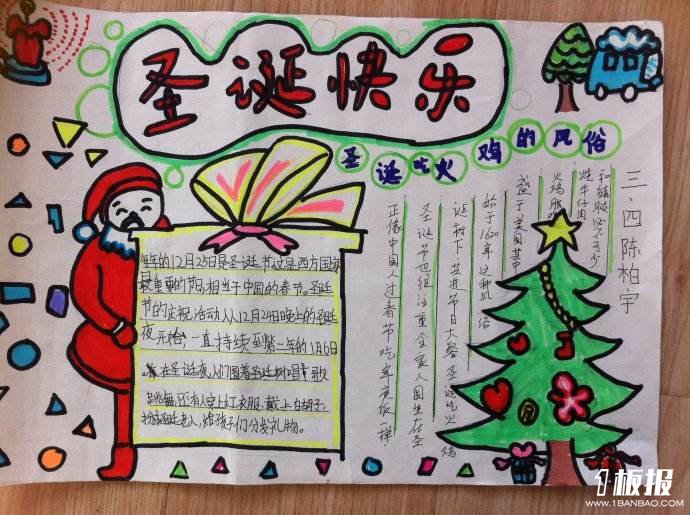 圣诞快乐
圣诞吃火鸡的风俗
三.四陈柏宇
每年的12月25日是圣诞节,这是西方国家
最重要的节日,相当于中国的春节。圣诞
节的庆祝活动从12月24日晚上的圣诞
夜开始,一直持续到第二年的1月6日
在圣诞夜人们围着圣诞树唱歌
跳舞,还有人穿上红衣服,戴上白胡子,
扮成圣诞老人,给孩子们分发礼物。
正像中国人过春节吃年夜饭一样,
圣诞节也很注重全家人围坐在圣
诞树下,共进节日大餐圣诞吃火鸡
始于1620年这种风俗
盛于美国其中
火鸡
烤牛仔肉
和猪腿必不可少
板报
WWW.1BANBAO.COM